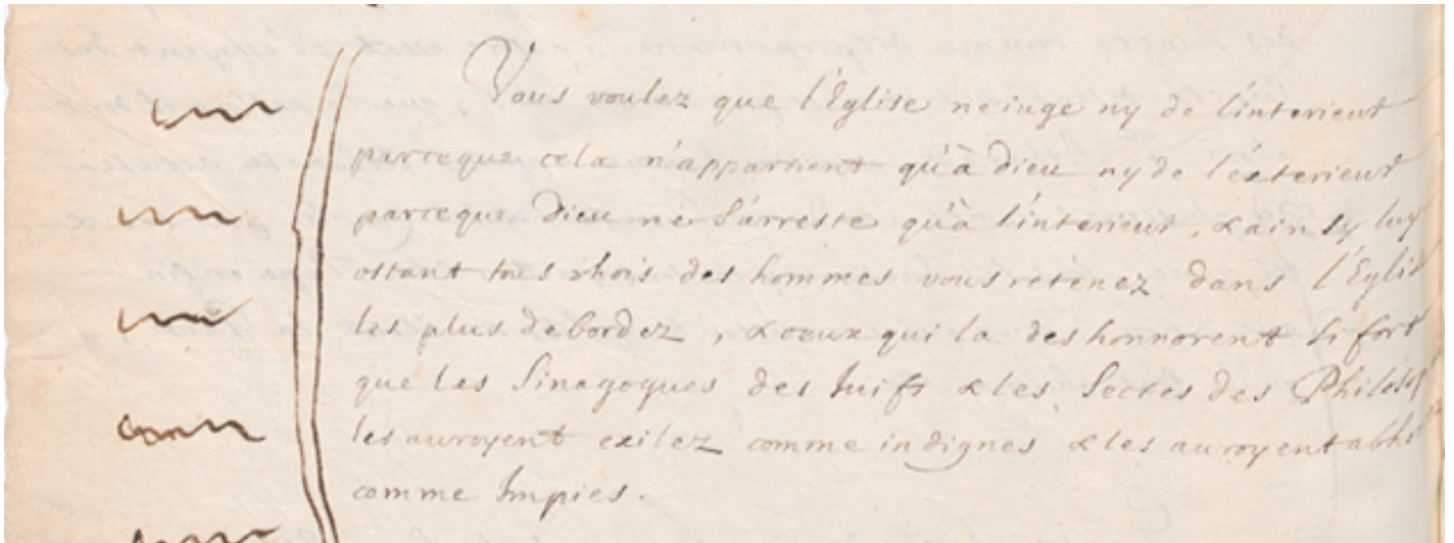 Vous voulez que l'Eglise ne iuge ny de l'interieur
parceque cela n'appartient qu'à Dieu ny de l'exterieur
parceque Dieu ne s'arreste qu'à l'interieur, & ainsy luy
ostant tous chois des hommes vous retenez dans l'Eglise
les plus debordez, & ceux qui la deshonnorent si fort
que les Sinagogues des Juifs & les Sectes des Philosop
les auroyent exilez comme indignes & les auroyent abho
comme Impies.